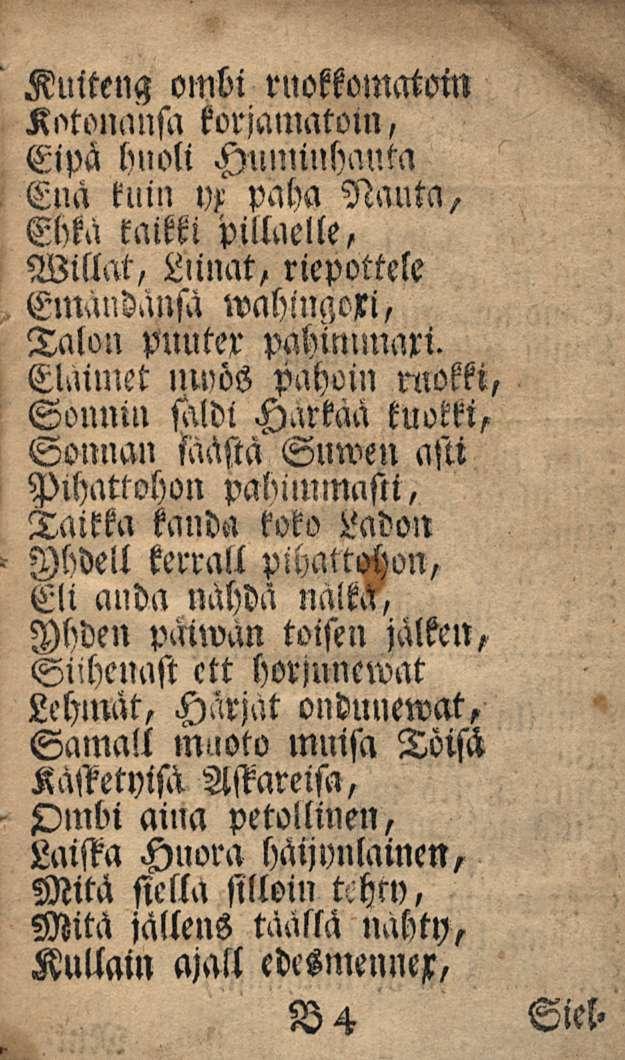 Kuiteng ombi ruokkomatoin
Kotonansa korjamatoin,
Eipä huoli Huminhauta
Enä kuin yx paha Nauta,
Ehkä kaikki pillaelle,
Willat, Liinat, riepottele
Emändänsä wahingoxi,
Talon puutex pahimmaxi.
Eläimet myös pahoin ruokki,
Sonnin säldi Härkää kuokki,
Sonnan säästä Suwen asti
Pihattohon pahimmasti,
Taikka kanda koko Ladon
Yhdell kerrall pihattohon,
Eli anda nähdä nälkä,
Yhden päiwän toisen jälken,
Siihenast ett horjunewat
Lehmät, Härjät ondunewat,
Samall muoto muisa Töisä
Käsketyisä Askareisa,
Ombi aina petollinen,
Laiska Huora häijynlainen,
Mitä siellä silloin tehty,
Mitä jällens täällä nähty,
Kullain ajall edesmennex,
B 4 Siel-